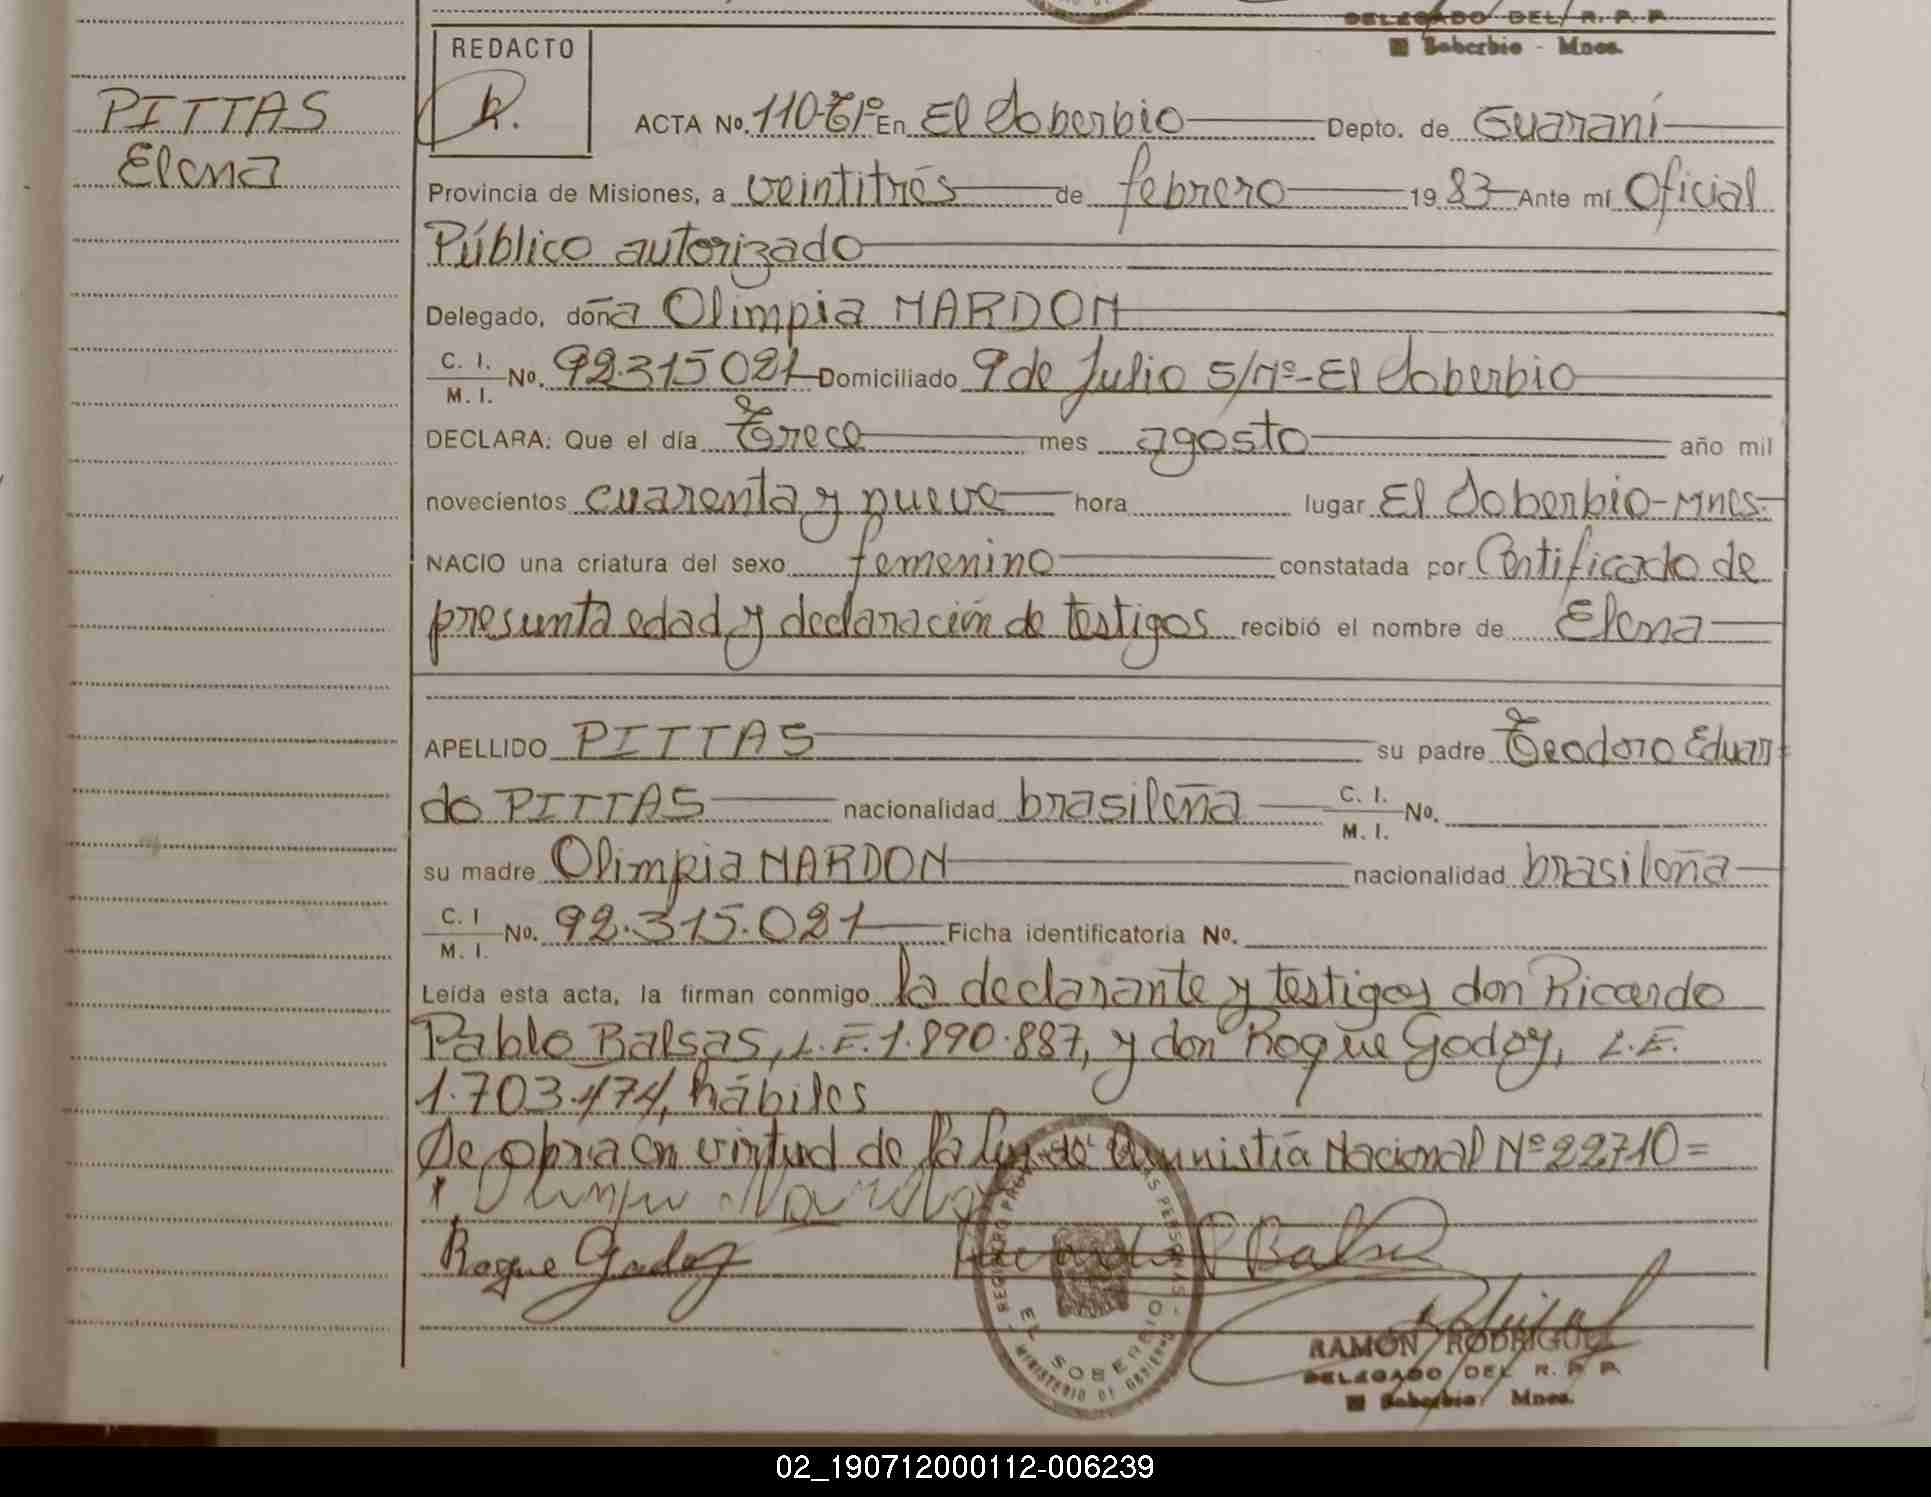 DELEGADO DEL R. P. P.
El Soberbio - Mnes.
PITTAS
Elena
REDACTO
R.
ACTA No. 110-Tº1º En El Soberbio Depto. de Guaraní
Provincia de Misiones, a veintitrés de febrero 1983 Ante mí Oficial
Público autorizado
Delegado, doña Olimpia NARDON
C. I. M. I. No. 92.315 021 Domiciliado 9 de Julio S/Nº-El Soberbio
DECLARA: Que el día Trece mes agosto año mil
novecientos cuarenta y nueve hora lugar El Soberbio-Mnes.
NACIO una criatura del sexo femenino constatada por Certificado de
presunta edad y declaración de testigos recibió el nombre de Elena
APELLIDO PITTAS su padre Teodoro Eduar
do PITTAS nacionalidad brasileña C. I. M. I. No.
su madre Olimpia NARDON nacionalidad brasileña
C. I. M. I. No. 92.315.021 Ficha identificatoria No.
Leída esta acta, la firman conmigo la declarante y testigos don Ricardo
Pablo Balsas, L.E. 1.890.887, y don Roque Godoy, L.E.
1.703.474, hábiles
Se obra en virtud de la Ley de Amnistía Nacional Nº 22710=
Roque Godoy
EL SOBERBIO
MINISTERIO DE GOBIERNO
RAMON RODRIGUEZ
DELEGADO DEL R. P. P.
El Soberbio Mnes.
02_190712000112-006239